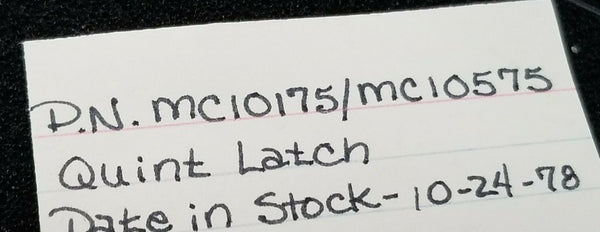 P.N. MC10175/MC10575
Quint Latch
Date in Stock-10-24-78